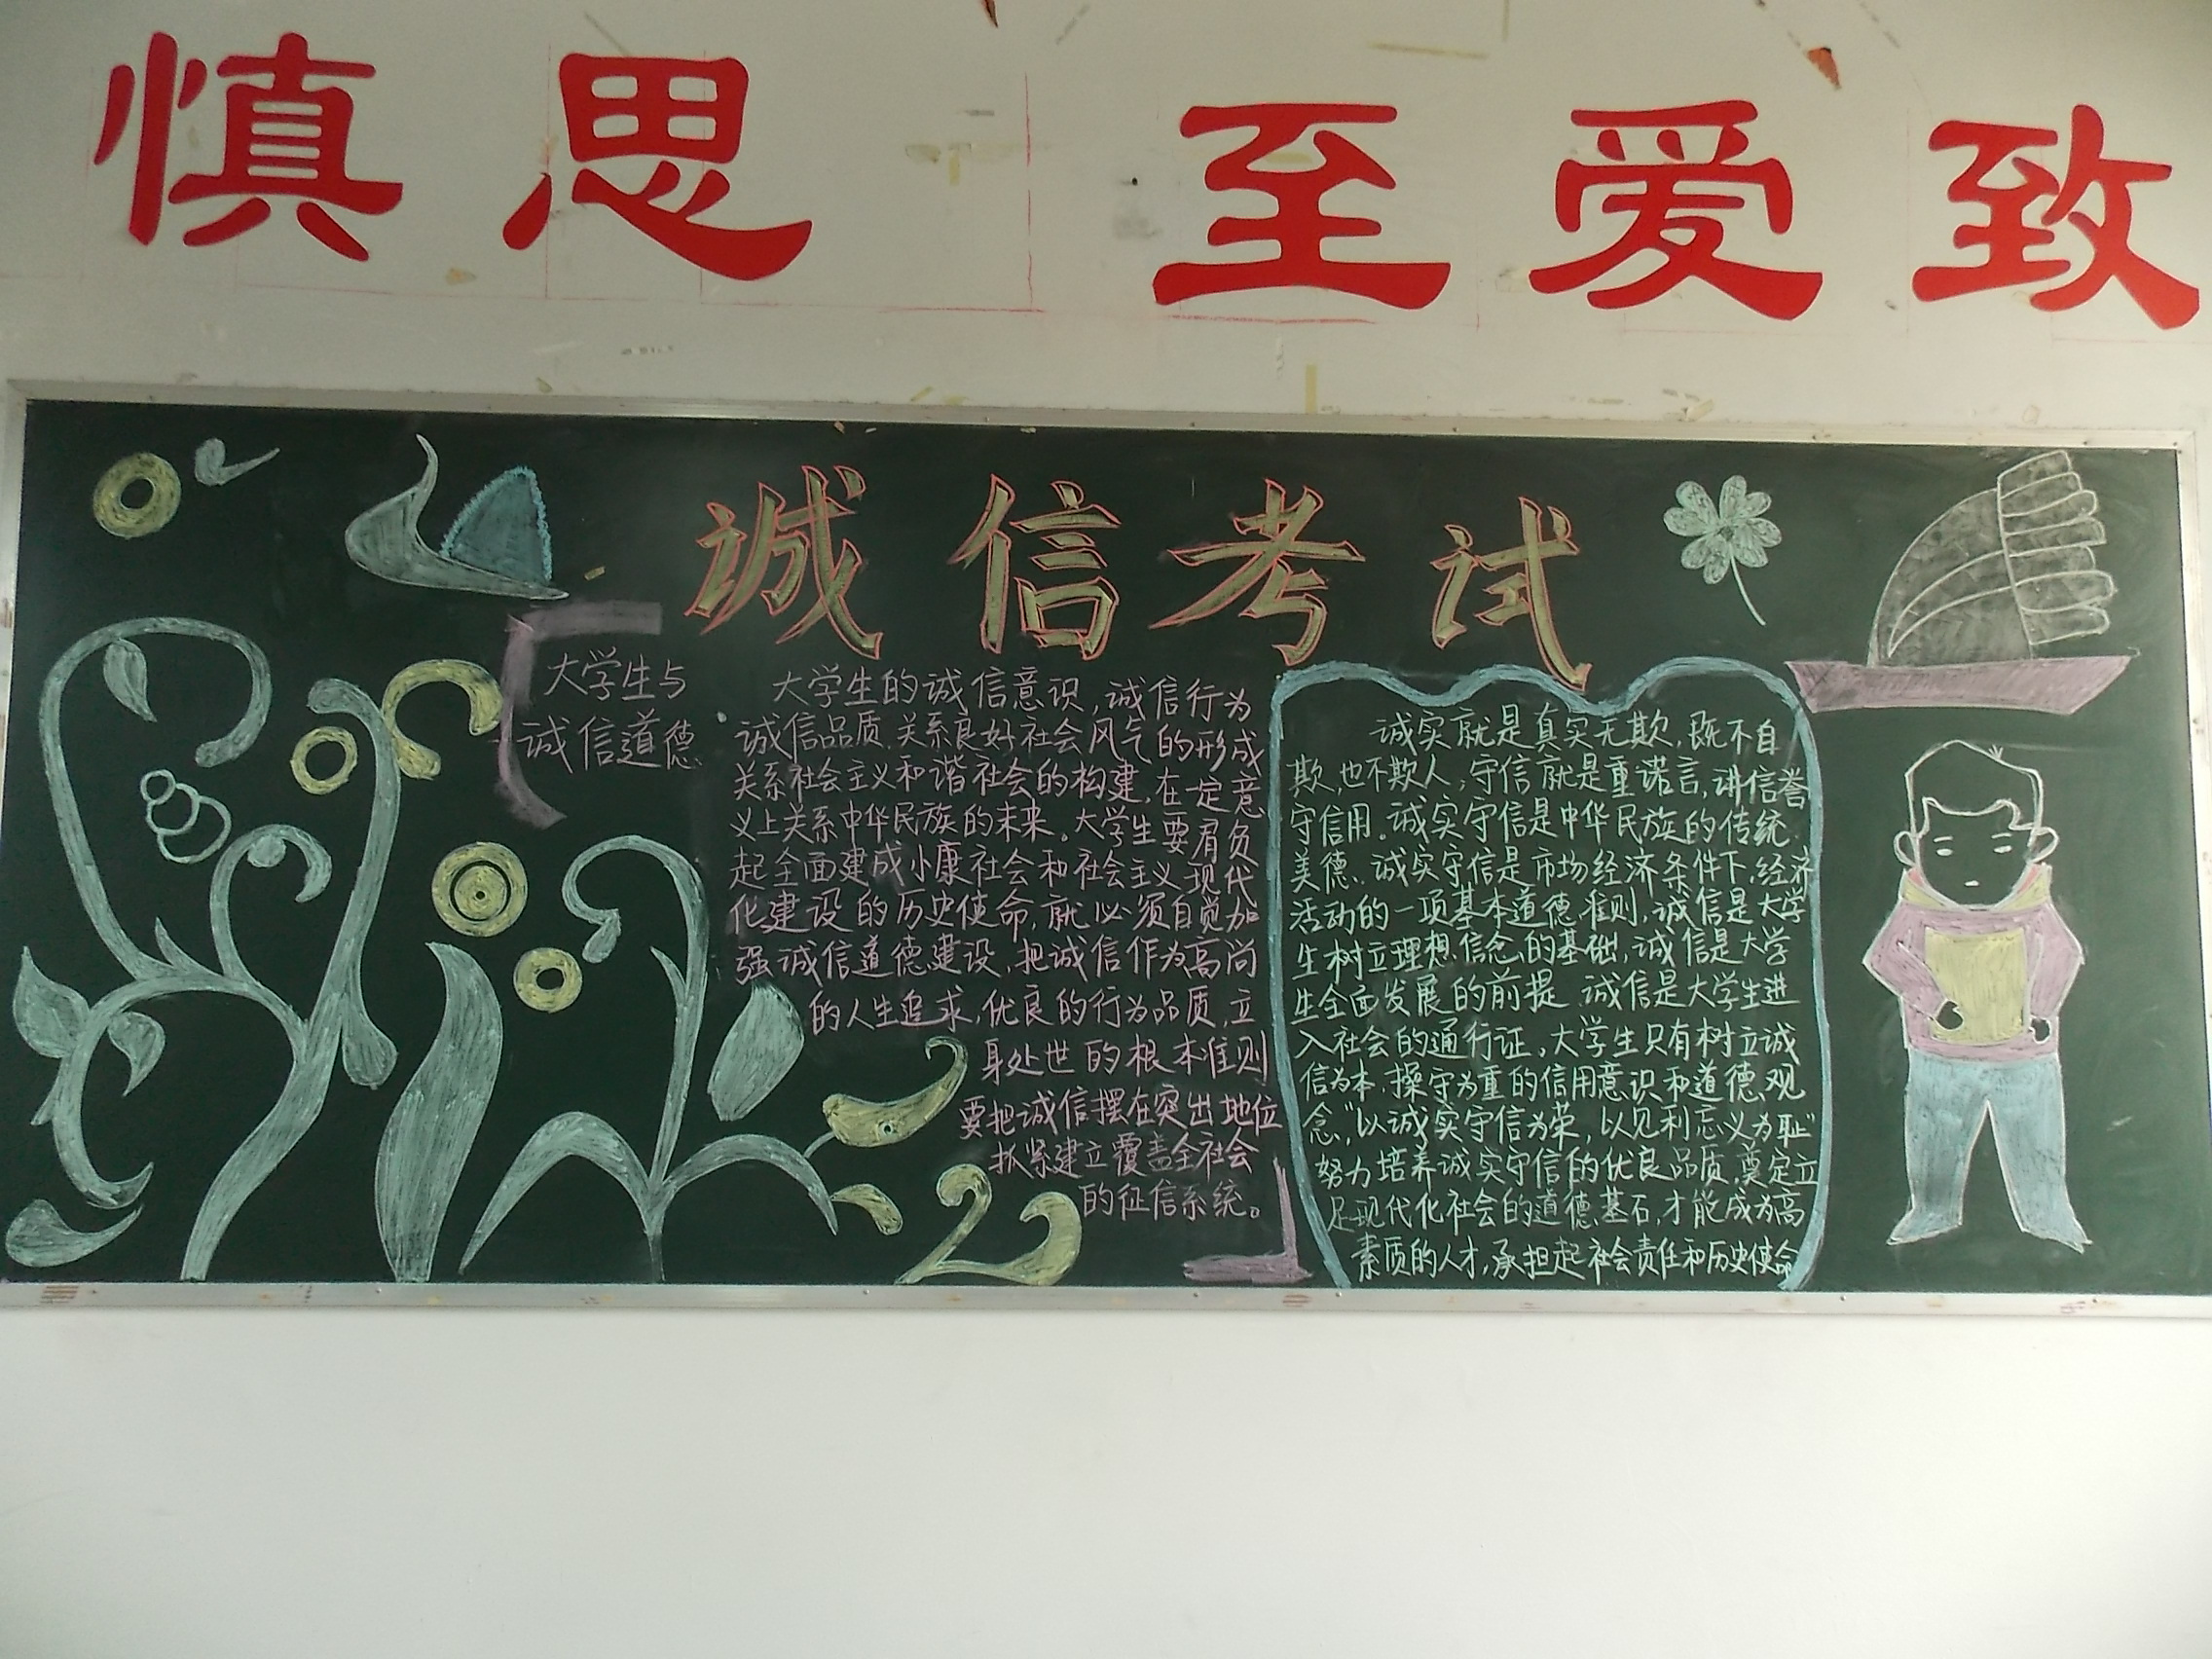 慎思 至爱致
诚信考试
大学生与
诚信道德
大学生的诚信意识,诚信行为
诚信品质,关系良好社会风气的形成
关系社会主义和谐社会的构建,在一定意
义上关系中华民族的未来。大学生要肩负
起全面建成小康社会和社会主义现代
化建设的历史使命,就必须自觉加
强诚信道德建设,把诚信作为高尚
的人生追求,优良的行为品质,立
身处世的根本准则
要把诚信摆在突出地位
抓紧建立覆盖全社会
的征信系统。
诚实就是真实无欺,既不自
欺,也不欺人;守信就是重诺言,讲信誉
守信用。诚实守信是中华民族的传统
美德、诚实守信是市场经济条件下,经济
活动的一项基本道德准则,诚信是大学
生树立理想信念的基础,诚信是大学
生全面发展的前提 诚信是大学生进
入社会的通行证。大学生只有树立诚
信为本,操守为重的信用意识和道德观
念,“以诚实守信为荣,以见利忘义为耻”
努力培养诚实守信的优良品质,奠定立
足现代化社会的道德基石,才能成为高
素质的人才,承担起社会责任和历史使命